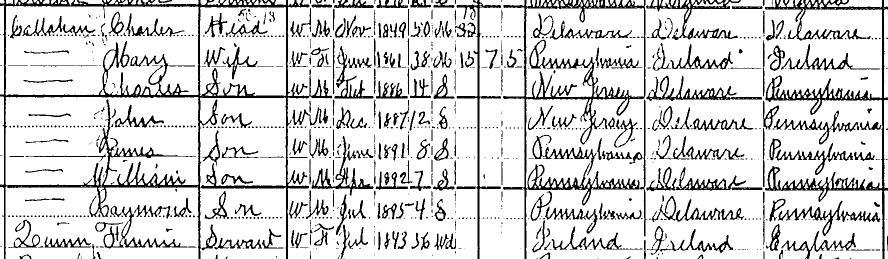 Callahan Charles Head W M Nov 1849 50 M 22 Delaware Delaware Delaware
— Mary Wife W F June 1861 38 M 15 7 5 Pennsylvania Ireland Ireland
— Charles Son W M Feb 1886 14 S New Jersey Delaware Pennsylvania
— John Son W M Dec 1887 12 S New Jersey Delaware Pennsylvania
— James Son W M June 1891 8 S Pennsylvania Delaware Pennsylvania
— William Son W M Apr 1892 7 S Pennsylvania Delaware Pennsylvania
— Raymond Son W M Jul 1895 4 S Pennsylvania Delaware Pennsylvania
Quinn Fannie Servant W F Jul 1843 56 Wd Ireland Ireland England